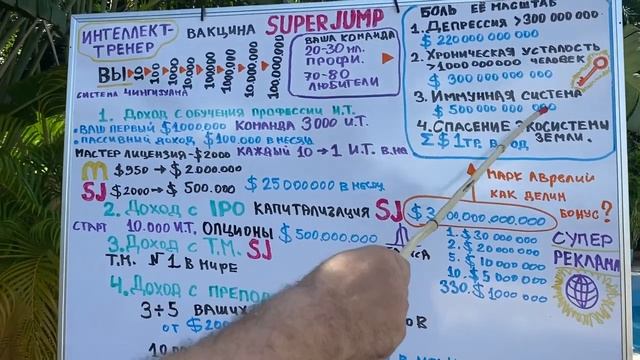 ИНТЕЛЛЕКТ-
ТРЕНЕР
ВАКЦИНА SUPERJUMP
ВЫ 10 100 1000 10000 100000 1000000 10000000 100.000.000
СИСТЕМА ЧИНГИЗХАНА
ВАША КОМАНДА
20-30 МЛ.
ПРОФИ.
70-80
ЛЮБИТЕЛИ
БОЛЬ ЕЁ МАСШТАБ
1. ДЕПРЕССИЯ >300 000 000
$ 220 000 000 000
2. ХРОНИЧЕСКАЯ УСТАЛОСТЬ
>1000 000 000 ЧЕЛОВЕК
$ 300 000 000 000
3. ИММУННАЯ СИСТЕМА
$ 500 000 000 000
4. СПАСЕНИЕ ЭКОСИСТЕМЫ
ЗЕМЛИ.
Σ $ 1 ТР. В ГОД
1. ДОХОД С ОБУЧЕНИЯ ПРОФЕССИИ И.Т.
• ВАШ ПЕРВЫЙ $1000000 КОМАНДА 3000 И.Т.
• ПАССИВНЫЙ ДОХОД $100.000 В МЕСЯЦ
МАСТЕР ЛИЦЕНЗИЯ-$2000 КАЖДЫЙ 10→1 И.Т. В
M $950 → $2.000.000
SJ $2000 → $500.000 $25000000 В МЕСЯЦ
2. ДОХОД С IPO КАПИТАЛИЗАЦИЯ SJ
СТАРТ 10.000 И.Т. ОПЦИОНЫ $500.000.000
3. ДОХОД С Т.М. SJ
Т.М. №1 В МИРЕ
4. ДОХОД С
3÷5 ВАШИХ
ОТ
МАРК АВРЕЛИЙ
КАК ДЕЛИМ
БОНУС?
1. $30 000 000
2. $20 000 000
5. $10 000 000
10. $5 000 000
330. $1000 000
СУПЕР
РЕКЛАМА